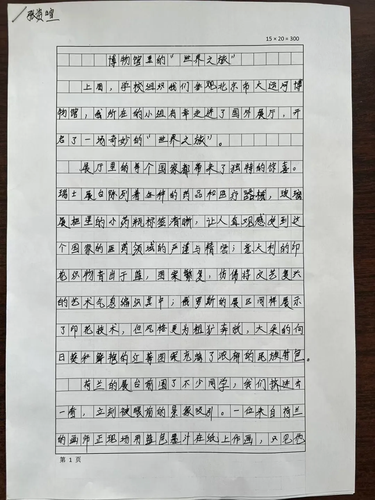 15×20=300
博物馆里的"世界之旅"
上周,学校组织我们参观北京市大运河博
物馆,我所在的小组有幸走进了国外展厅,开
启了一场奇妙的"世界之旅"。
展厅里的每个国家都带来了独特的惊喜。
瑞士展台陈列着各种的药品和医疗器械,玻璃
展柜里的小药瓶标签清晰,让人直观感受到这
个国家的医药领域的严谨与精密;意大利的印
花织物青出于蓝,图案繁复,仿佛将文艺复兴
的艺术气息缩织其中;俄罗斯的展区同样展示
了印花技术,但风格更为粗犷奔放,大朵的向
日葵和鲜艳的红莓图案充满了浓郁的民族特色。
荷兰的展台前围了不少同学,我们挤进去
一看,立刻被眼前的景象吸引。一位来自荷兰
的画师正现场用蓝色墨汁在纸上作画,只见他
第 1 页